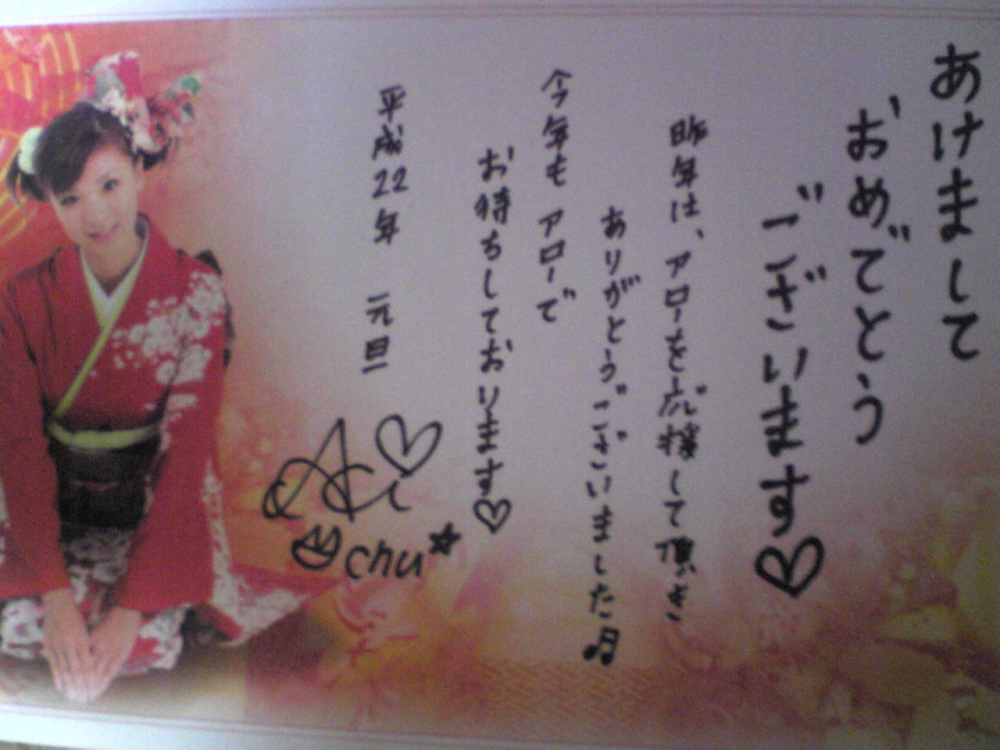 あけまして
おめでとう
ございます♡
昨年は、アローを応援して頂き
ありがとうございました♫
今年もアローで
お待ちしております♡
平成22年 元旦
Ai♡
chu☆